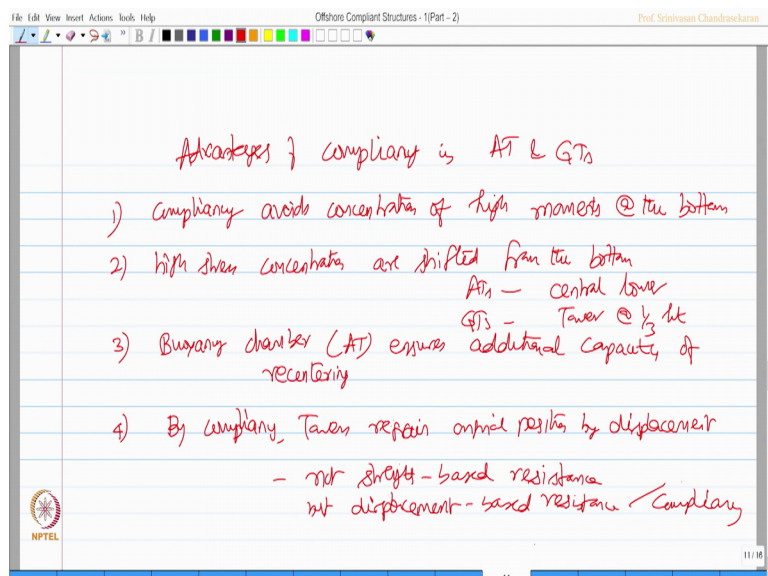 File Edit View Insert Actions Tools Help
Offshore Compliant Structures - 1(Part – 2)
Prof. Srinivasan Chandrasekaran
B I
Advantages of compliancy in AT & GTs
1) Compliancy avoids concentration of high moments @ the bottom
2) high stress concentration are shifted from the bottom
ATs – central tower
GTs – Tower @ 1/3 ht
3) Buoyancy chamber (AT) ensures additional capacity of
recentering
4) By compliancy, Towers regain original position by displacement
– not strength-based resistance
but displacement-based resistance / Compliancy
NPTEL
11 / 16